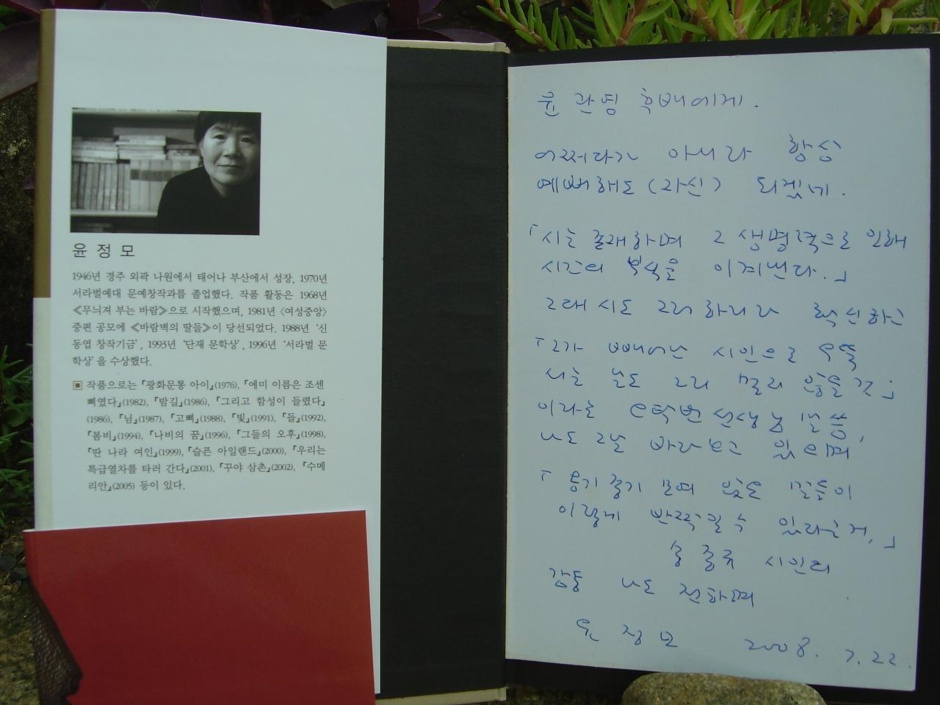 윤정모
1946년 경주 외곽 나원에서 태어나 부산에서 성장, 1970년
서라벌예대 문예창작과를 졸업했다. 작품 활동은 1968년
《무늬져 부는 바람》으로 시작했으며, 1981년 〈여성중앙〉
중편 공모에 《바람벽의 딸들》이 당선되었다. 1988년 '신
동엽 창작기금', 1993년 '단재 문학상', 1996년 '서라벌 문
학상'을 수상했다.
▣ 작품으로는 『광화문통 아이』(1976), 『에미 이름은 조센
삐였다』(1982), 『밤길』(1986), 『그리고 함성이 들렸다』
(1986), 『님』(1987), 『고삐』(1988), 『빛』(1991), 『들』(1992),
『봄비』(1994), 『나비의 꿈』(1996), 『그들의 오후』(1998),
『딴 나라 여인』(1999), 『슬픈 아일랜드』(2000), 『우리는
특급열차를 타러 간다』(2001), 『꾸야 삼촌』(2002), 『수메
리안』(2005) 등이 있다.
윤관영 후배에게.
어쩌다가 아니라 항상
예뻐해도 (자신) 되겠네.
「시는 노래하며 그 생명력으로 인해
시간의 부식을 이겨낸다.」
그대 시도 그러하리라 확신하는
「그가 빼어난 시인으로 우뚝
서는 날도 그리 멀리 않을 것」
이라는 선생님 말씀,
나도 그날 바라보고 있으며
「옹기종기 모여 있는 말들이
이렇게 반짝일 수 있다는 거,」
시인의
감동 나도 전하며
윤정모 2008. 7. 22.